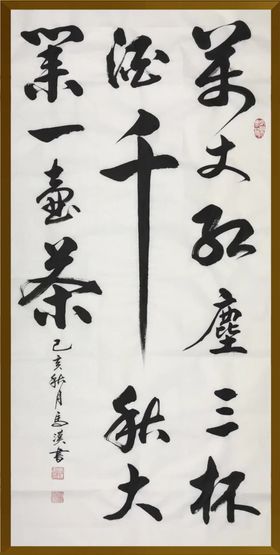 萬丈红塵三杯
酒千秋大
業一壶茶
己亥秋月馬漢書